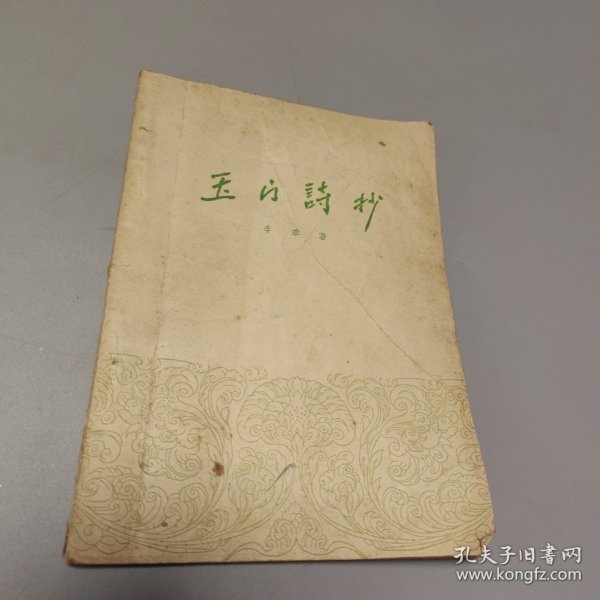 玉门詩抄
李季著
孔夫子旧書网
www.kongfz.com